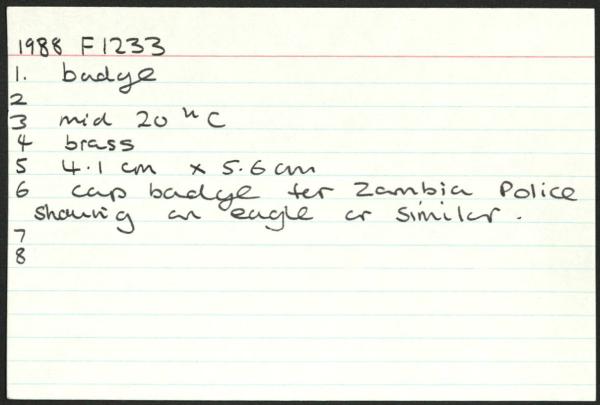 1988 F1233
1. badge
2
3 mid 20th C
4 brass
5 4.1 cm x 5.6 cm
6 cap badge for Zambia Police
showing an eagle or similar.
7
8